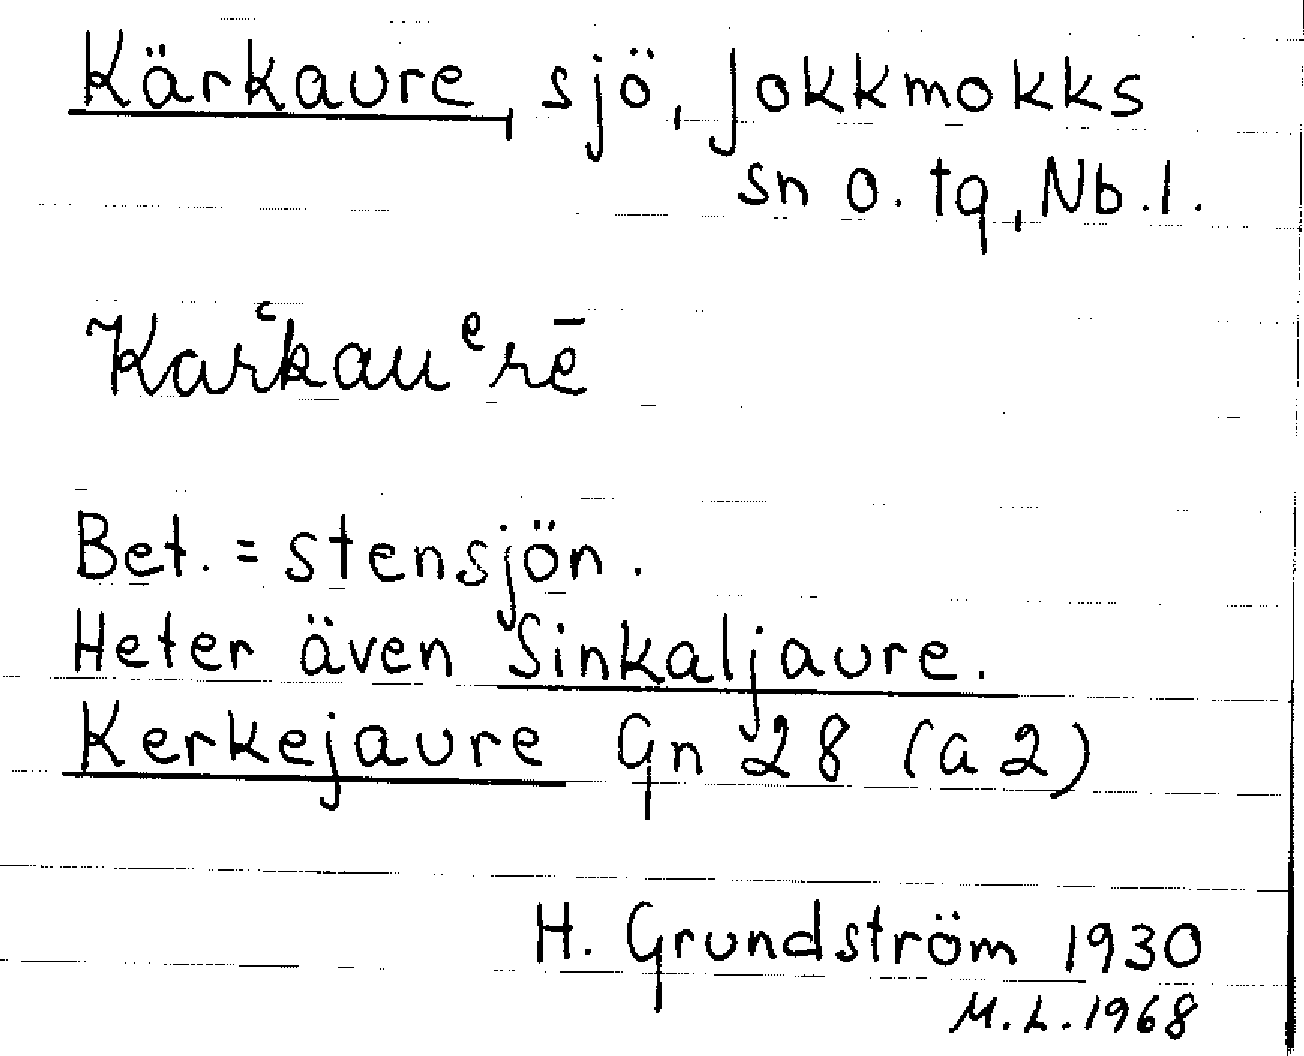 Kärkaure, sjö, Jokkmokks
sn o. tg, Nb.l.
Karʿkauᵉrē
Bet. = stensjön.
Heter även Sinkaljaure.
Kerkejaure Gn 28 (a2)
H. Grundström 1930
M.L.1968